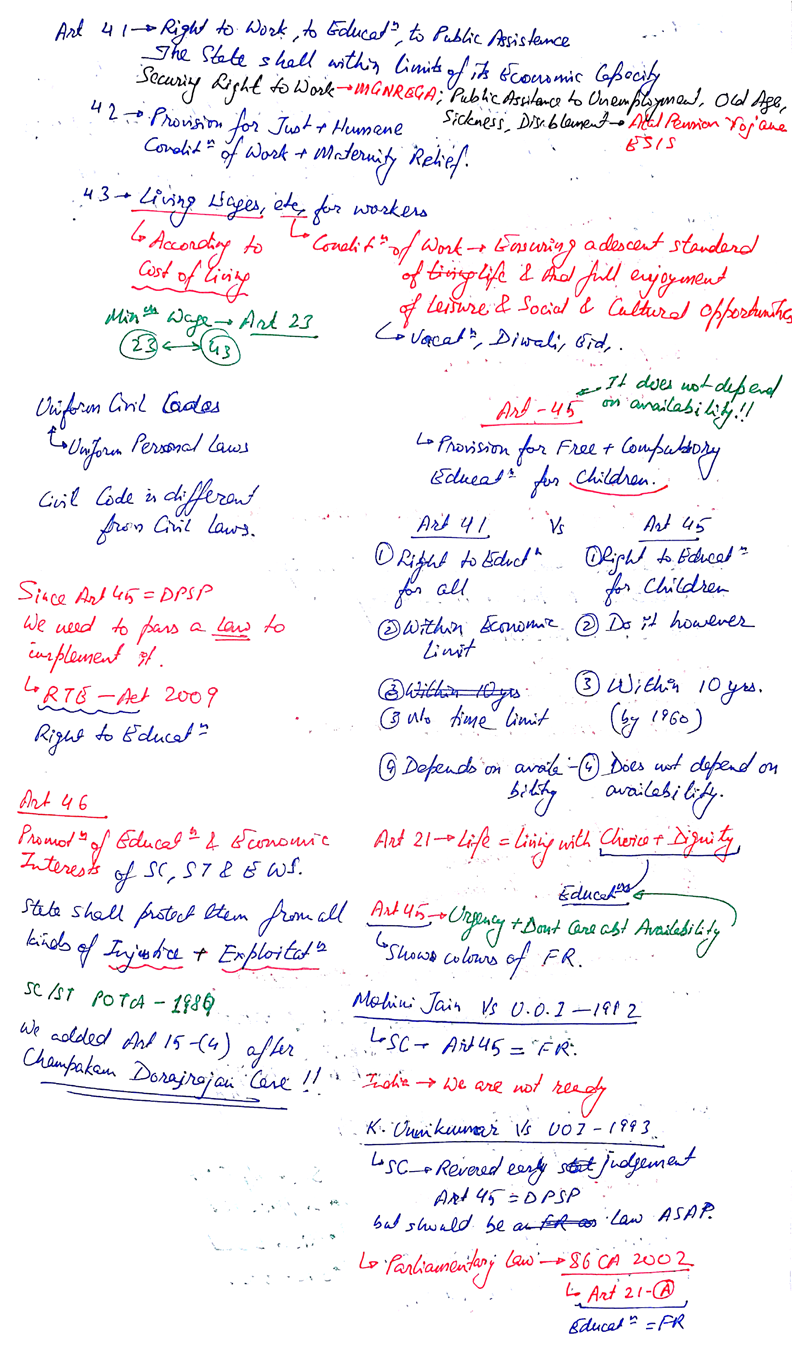 Art 41 → Right to Work, to Educatⁿ, to Public Assistance
The State shall within limits of its Economic Capacity
Securing Right to Work → MGNREGA; Public Assitance to Unemployment, Old Age,
Sickness, Disablement → Atal Pension Yojane
ESIS
42 → Provision for Just + Humane
Conditⁿ of Work + Maternity Relief.
43 → Living Wages, etc, for workers
↳ According to
Cost of Living
↳ Conditⁿ of Work → Ensuring a descent standard
of living life & And full enjoyment
of Leisure & Social & Cultural Opportunities
↳ Vacatⁿ, Diwali, Eid,.
Minᵘᵐ Wage → Art 23
23 ↔ 43
Uniform Civil Codes
↳ Uniform Personal Laws
Civil Code is different
from Civil Laws.
It does not depend
on availability!!
Art - 45
↳ Provision for Free + Compulsory
Educatⁿ for Children.
Art 41 Vs Art 45
① Right to Eductⁿ
for all
① Right to Educatⁿ
for Children
② Within Economic
Limit
② Do it however
③ Within 10 yrs
③ No time limit
③ Within 10 yrs.
(by 1960)
④ Depends on availa-
bility
④ Does not depend on
availability.
Since Art 45 = DPSP
We need to pass a Law to
implement it.
↳ RTE - Act 2009
Right to Educatⁿ
Art 46
Promotⁿ of Educatⁿ & Economic
Interests of SC, ST & EWS.
State shall protect them from all
kinds of Injustice + Exploitatⁿ
SC/ST POTA - 1989
We added Art 15-(4) after
Champakam Dorajrajan Case!!
Art 21 → Life = Living with Choice + Dignity
Educatⁿ
Art 45 → Urgency + Dont Care abt Availability
↳ Shows colours of FR.
Mohini Jain Vs U.O.I - 1992
↳ SC → Art 45 = FR.
India → We are not ready
K. Unnikumar Vs UOI - 1993
↳ SC → Revered early judgement
Art 45 = DPSP
but should be a FR as Law ASAP.
↳ Parliamentary Law → 86 CA 2002
↳ Art 21-Ⓐ
Educatⁿ = FR